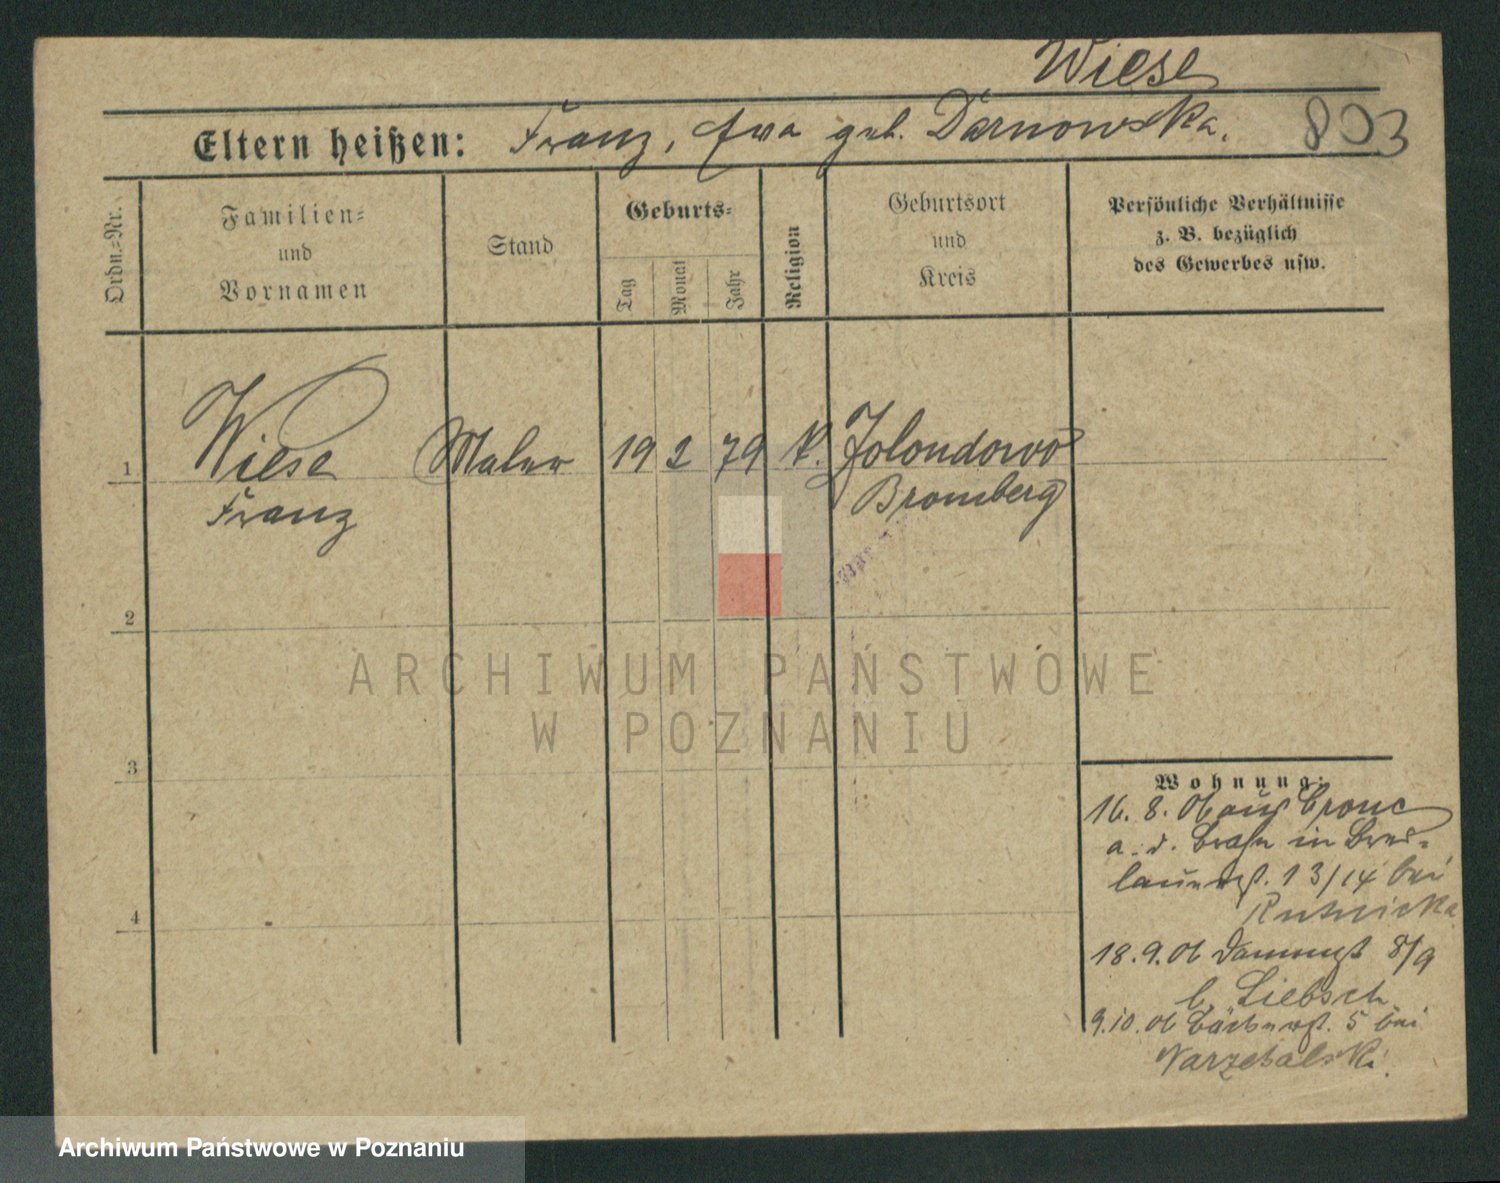 Wiese
Eltern heißen: Franz, Ewa geb. Darnowska.
803
Ordn.=Nr.
Familien=
und
Vornamen
Stand
Geburts=
Tag
Monat
Jahr
Religion
Geburtsort
und
Kreis
Persönliche Verhältnisse
z. B. bezüglich
des Gewerbes usw.
1 Wiese Maler 19 2 79 k. Jolondowo
Franz Bromberg
2
3
4
Wohnung:
16. 8. 06 aus Crone
a. d. Brahe in Bres=
lauerst. 13/14 bei
18. 9. 06 8/9
b. Liebsch
9. 10. 06 5 bei
ARCHIWUM PAŃSTWOWE
W POZNANIU
Archiwum Państwowe w Poznaniu